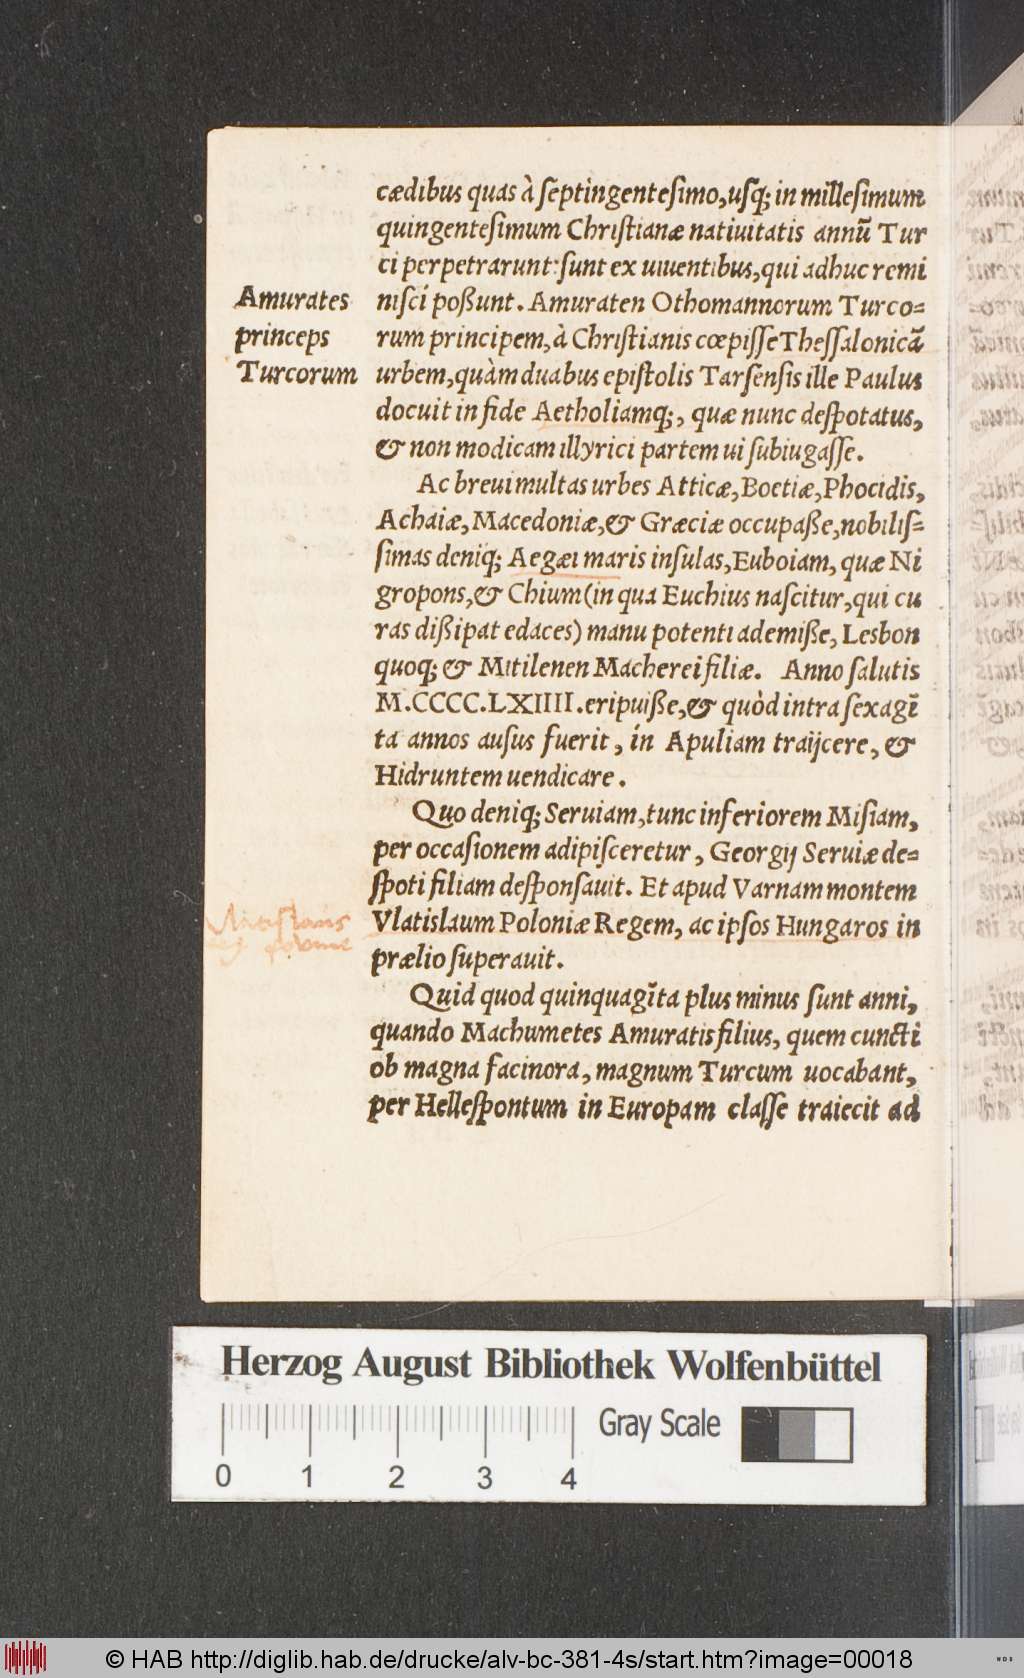 cædibus quas à septingentesimo, usq; in millesimum
quingentesimum Christianæ natiuitatis annũ Tur
ci perpetrarunt: sunt ex uiuentibus, qui adhuc remi
Amurates
princeps
Turcorum
nisci poßunt. Amuraten Othomannorum Turco=
rum principem, à Christianis cœpisse Thessalonicã
urbem, quàm duabus epistolis Tarsensis ille Paulus
docuit in fide Aetholiamq;, quæ nunc despotatus,
& non modicam illyrici partem ui subiugasse.
Ac breui multas urbes Atticæ, Boetiæ, Phocidis,
Achaiæ, Macedoniæ, & Græciæ occupaße, nobilis=
simas deniq; Aegæi maris insulas, Euboiam, quæ Ni
gropons, & Chium (in qua Euchius nascitur, qui cu
ras dißipat edaces) manu potenti ademiße, Lesbon
quoq; & Mitilenen Macherei filiæ. Anno salutis
M.CCCC.LXIIII. eripuiße, & quòd intra sexagĩ
ta annos ausus fuerit, in Apuliam traijcere, &
Hidruntem uendicare.
Quo deniq; Seruiam, tunc inferiorem Misiam,
per occasionem adipisceretur, Georgij Seruiæ de=
spoti filiam desponsauit. Et apud Varnam montem
Vlatislaum Poloniæ Regem, ac ipsos Hungaros in
prælio superauit.
Quid quod quinquagĩta plus minus sunt anni,
quando Machumetes Amuratis filius, quem cuncti
ob magna facinora, magnum Turcum uocabant,
per Hellespontum in Europam classe traiecit ad
Herzog August Bibliothek Wolfenbüttel
Gray Scale
0 1 2 3 4
© HAB http://diglib.hab.de/drucke/alv-bc-381-4s/start.htm?image=00018